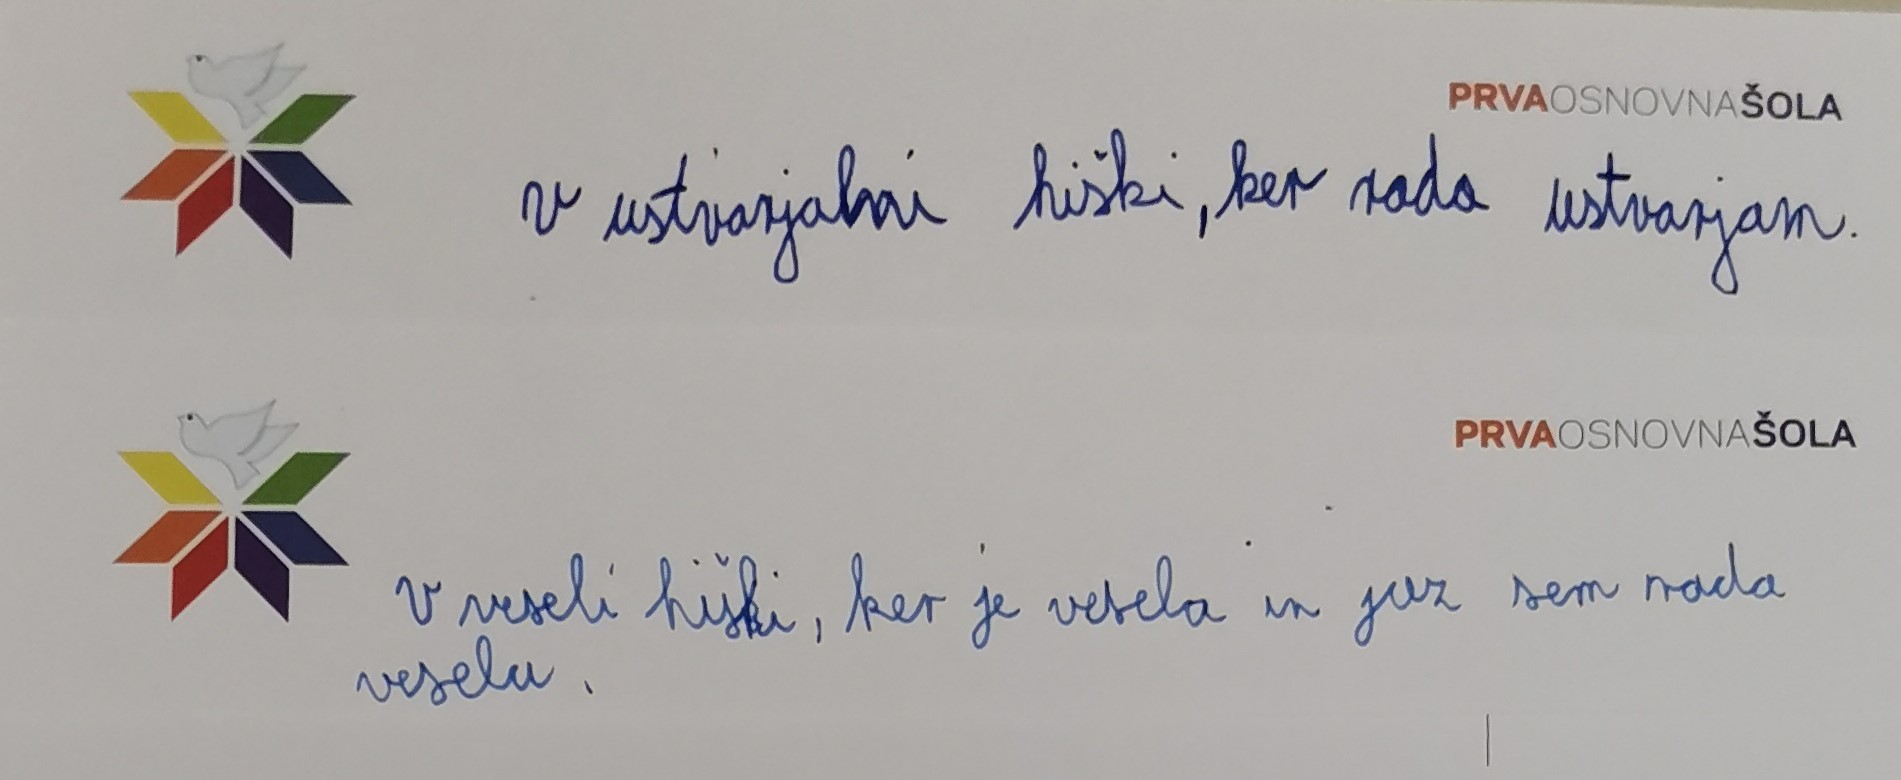 PRVAOSNOVNAŠOLA
v ustvarjalni hiški, ker rada ustvarjam.
PRVAOSNOVNAŠOLA
V veseli hiški, ker je vesela in jaz sem rada
vesela.